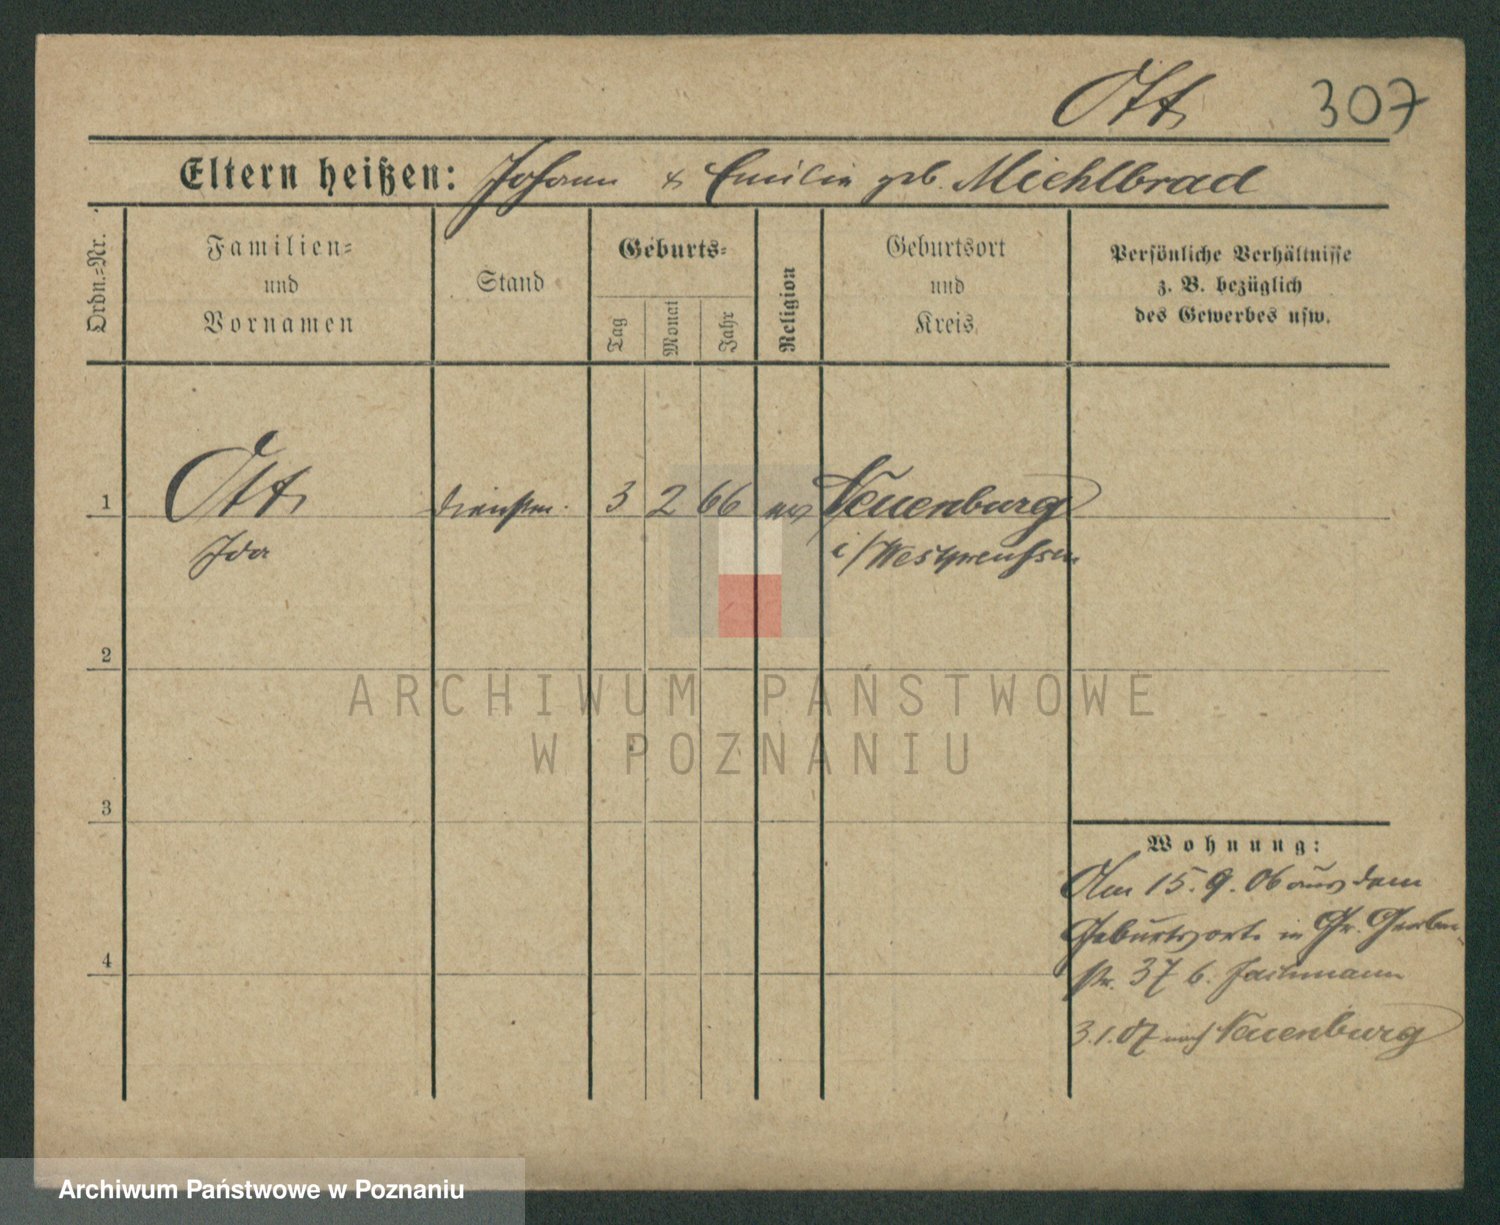 Ott 307
Eltern heißen: Johann & Emilie geb. Miehlbrad
Ordn.=Nr.
Familien=
und
Vornamen
Stand
Geburts=
Tag
Monat
Jahr
Religion
Geburtsort
und
Kreis.
Persönliche Verhältnisse
z. B. bezüglich
des Gewerbes usw.
1 Ott 3 2 66 ev Neuenburg
Ida i/Westpreussen
2
ARCHIWUM PAŃSTWOWE
W POZNANIU
3
Wohnung:
Am 15.9.06 aus dem
Geburtsorte in Gr. Gerber
str. 37 b. Jachmann
4
3.1.07 nach Neuenburg
Archiwum Państwowe w Poznaniu